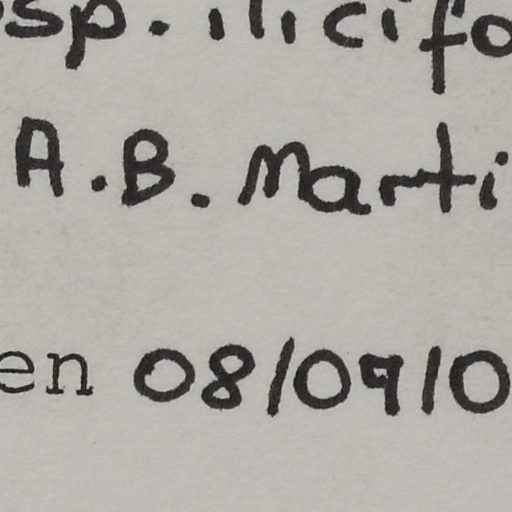 sp. ilicifo
A.B. Marti
en 08/09/0